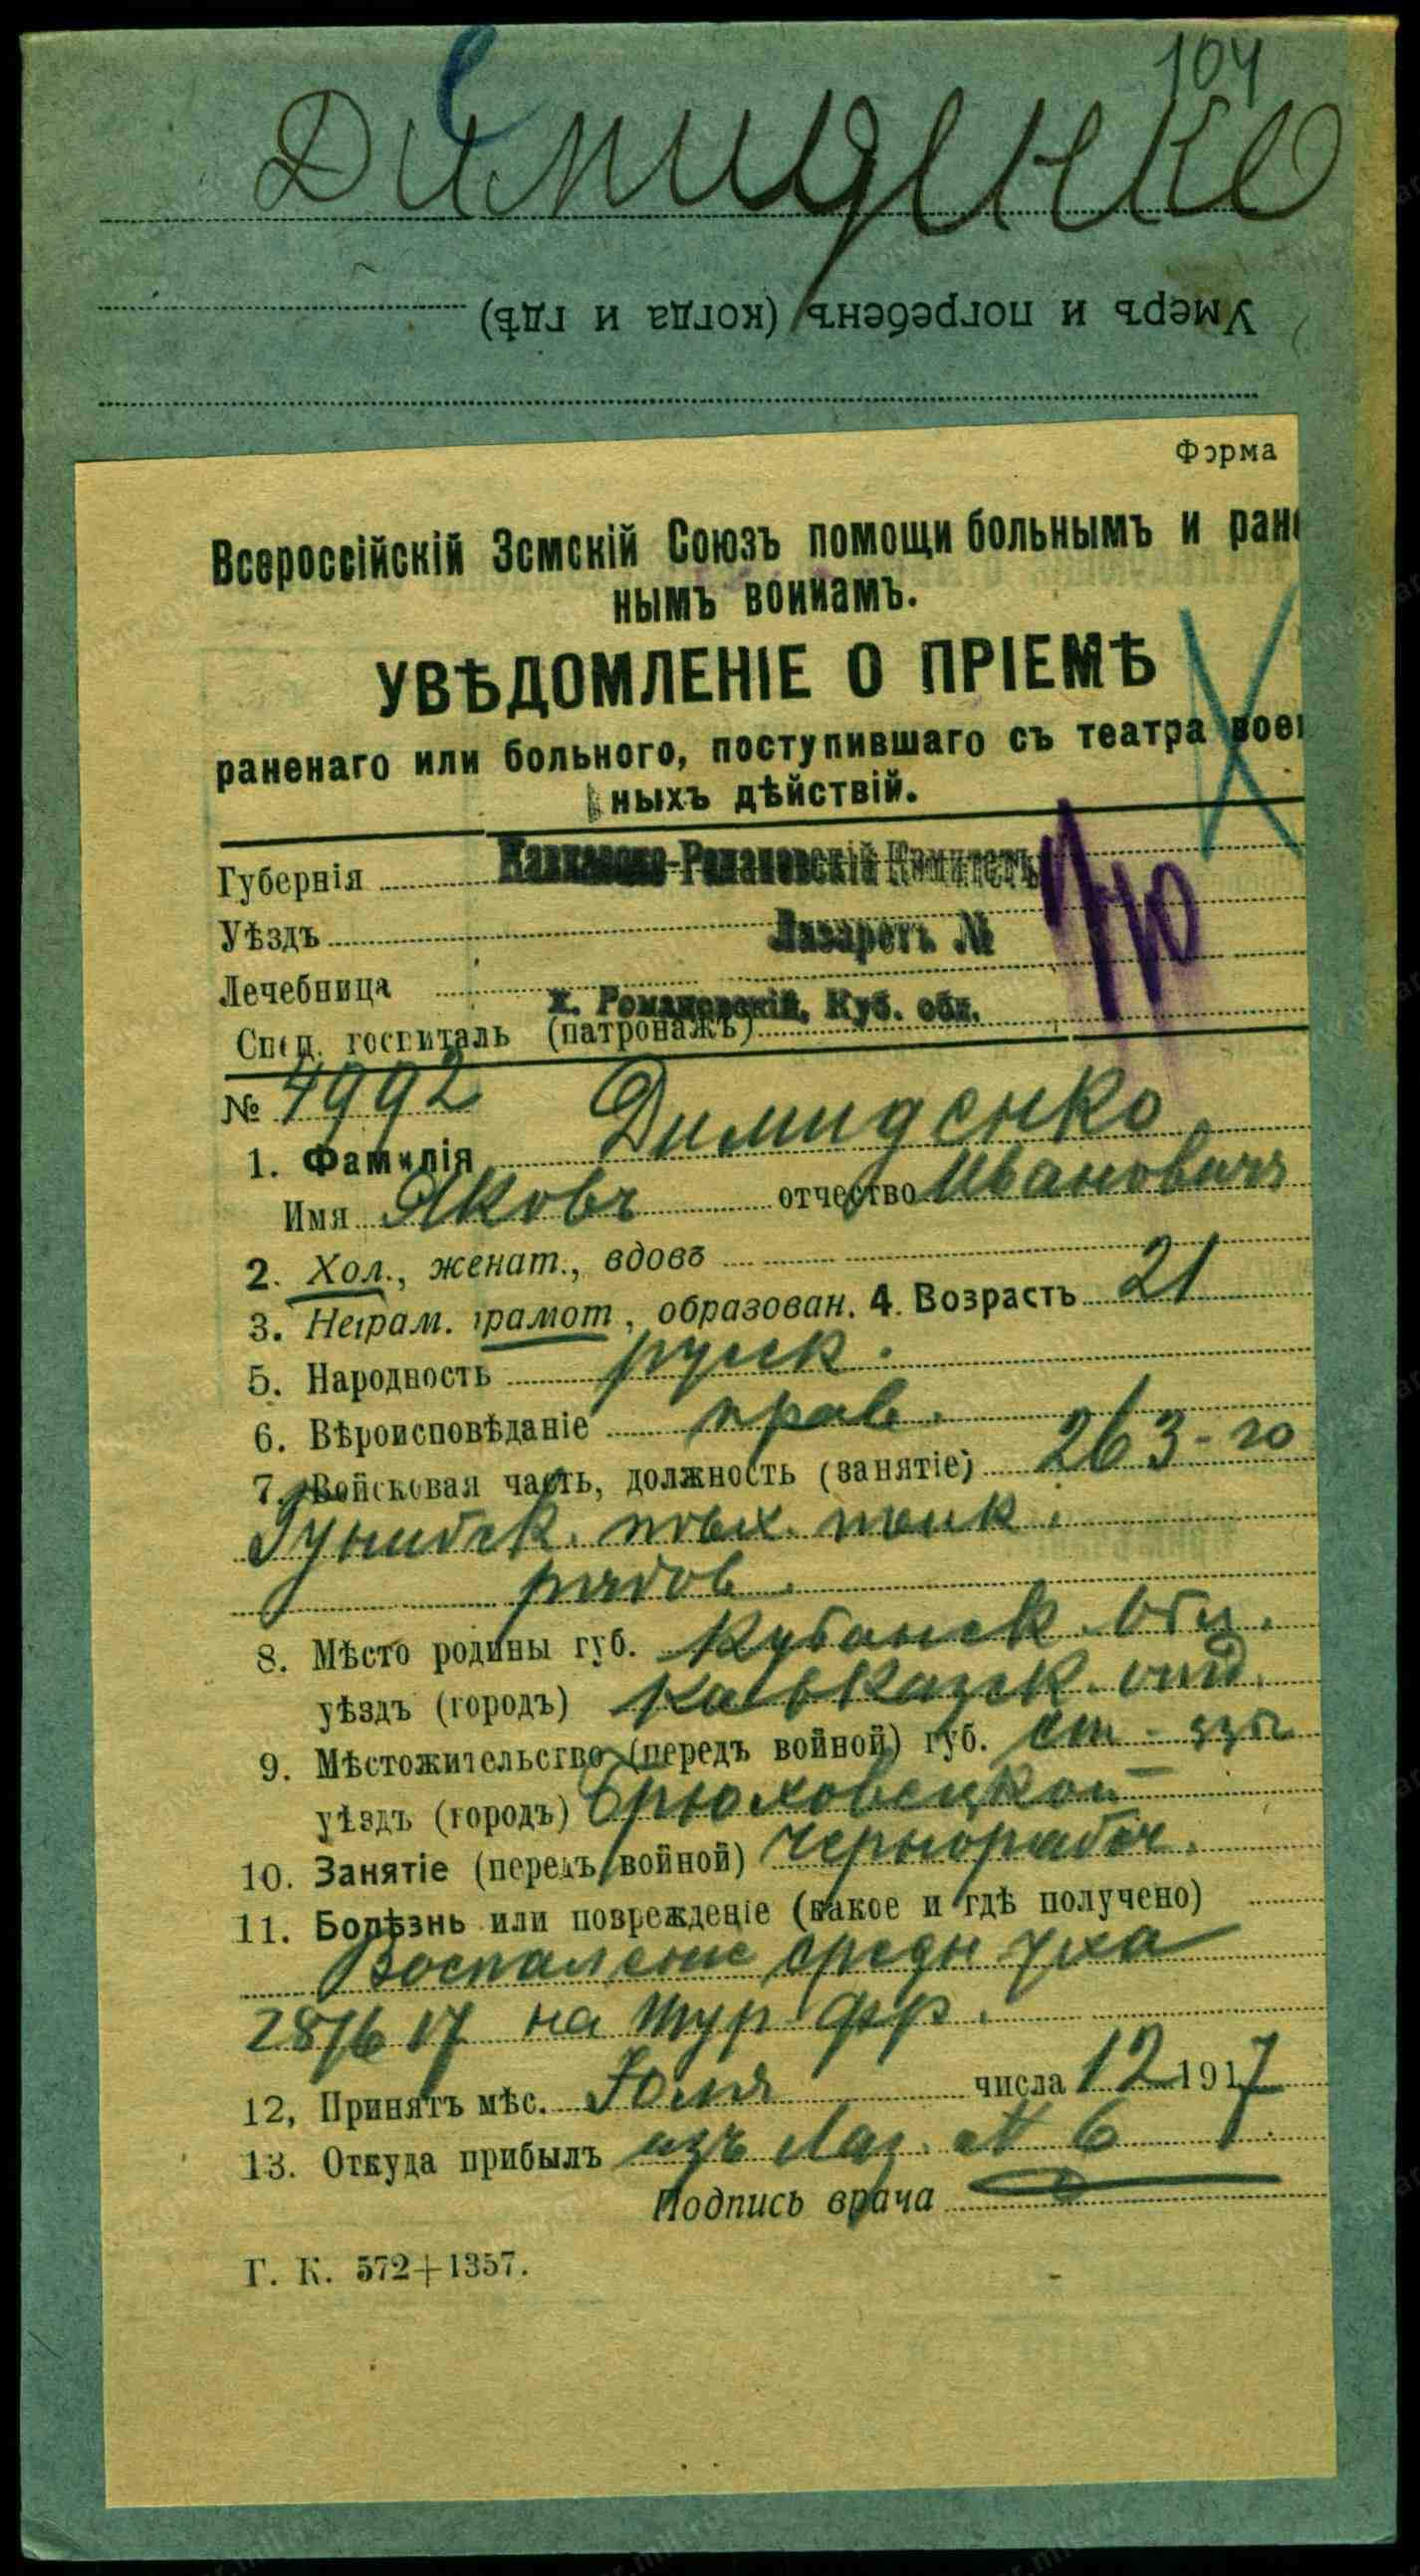 104
Димиденко
Умеръ и погребенъ (когда и гдѣ)
Форма
Всероссійскій Земскій Союзъ помощи больнымъ и ране
нымъ воинамъ.
УВѢДОМЛЕНІЕ О ПРІЕМѢ
раненаго или больного, поступившаго съ театра воен
ныхъ дѣйствій.
Губернія Кавказско-Романовскій Комитетъ
Уѣздъ Лазаретъ №
Лечебница
Х. Романовскій, Куб. обл.
Спец. госпиталь (патронажъ)
№ 4992
1. Фамилія Димиденко
Имя Яковъ отчество Ивановичъ
2. Хол., женат., вдовъ
3. Неграм. грамот, образован. 4. Возрастъ 21
5. Народность руск.
6. Вѣроисповѣданіе прав.
7. Войсковая часть, должность (занятіе) 263-го
Гунибск. пѣх. полк.
рядов.
8. Мѣсто родины губ. Кубанск. Обл.
уѣздъ (городъ) Кавказск. отд.
9. Мѣстожительство (передъ войной) губ. ст-цы
уѣздъ (городъ) Брюховецкой
10. Занятіе (передъ войной) Чернорабоч.
11. Болѣзнь или поврежденіе (какое и гдѣ получено)
Воспаление средн уха
28/6 17 на Тур. фр.
12, Принятъ мѣс. Юля числа 12 1917
13. Откуда прибылъ изъ Лаз. № 6
Подпись врача
Г. К. 572+1357.